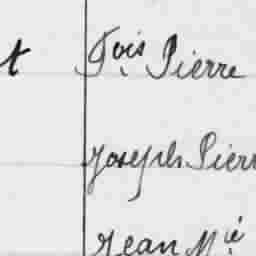 t Fois Pierre
Joseph Pierr
Jean Mie